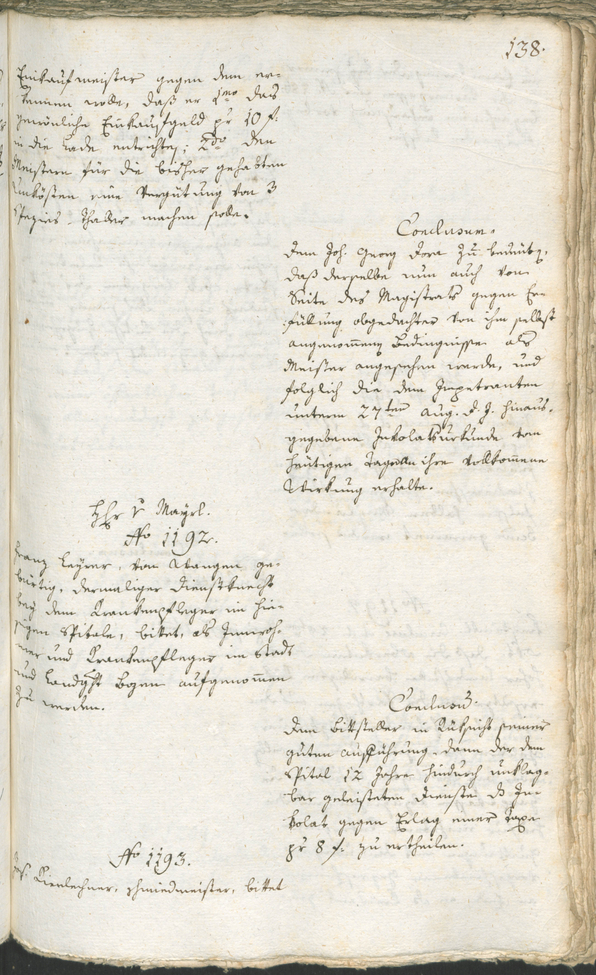 138.
Einkaufmeister gegen dem er-
kennen wolle, daß er 1mo das
gewönliche Einkaufgeld pr 10 f.
in die Lade entrichte; 2do den
Meistern für die bisher gehabten
Unkösten eine Vergütung von 3
Spezies-Thaller machen solle.
Conclusum.
Dem Joh. Georg Dora zu bedeuten,
daß derselbe nun auch von
Seite des Magistrats gegen Er-
füllung obgedachter von ihm selbst
angenommenen Bedingnisse als
Meister angesehen werde, und
folglich die dem Impetranten
unterm 27ten Aug. d. J. hinaus-
gegebene Inkolatsurkunde vom
heutigen Tage an ihre vollkommene
Wirkung erhalte.
Hhr v Mayrl.
No 1192.
Franz Layrer, von Wangen ge-
bürtig, dermaliger Dienstknecht
bey dem Krankenpfleger im hie-
sigen Spitale, bittet, als Inwoh-
ner und Krankenpfleger im Stadt
und Landgcht Bozen aufgenommen
zu werden.
Conclusum.
Dem Bittsteller in Rüksicht seiner
guten Aufführung, dann der dem
Spital 12 Jahre hindurch unklag-
bar geleisteten Dienste das In-
kolat gegen Erlag einer Taxe
pr 8 f. zu ertheilen.
No 1193.
Jos. Kienlechner, Schmiedmeister, bittet